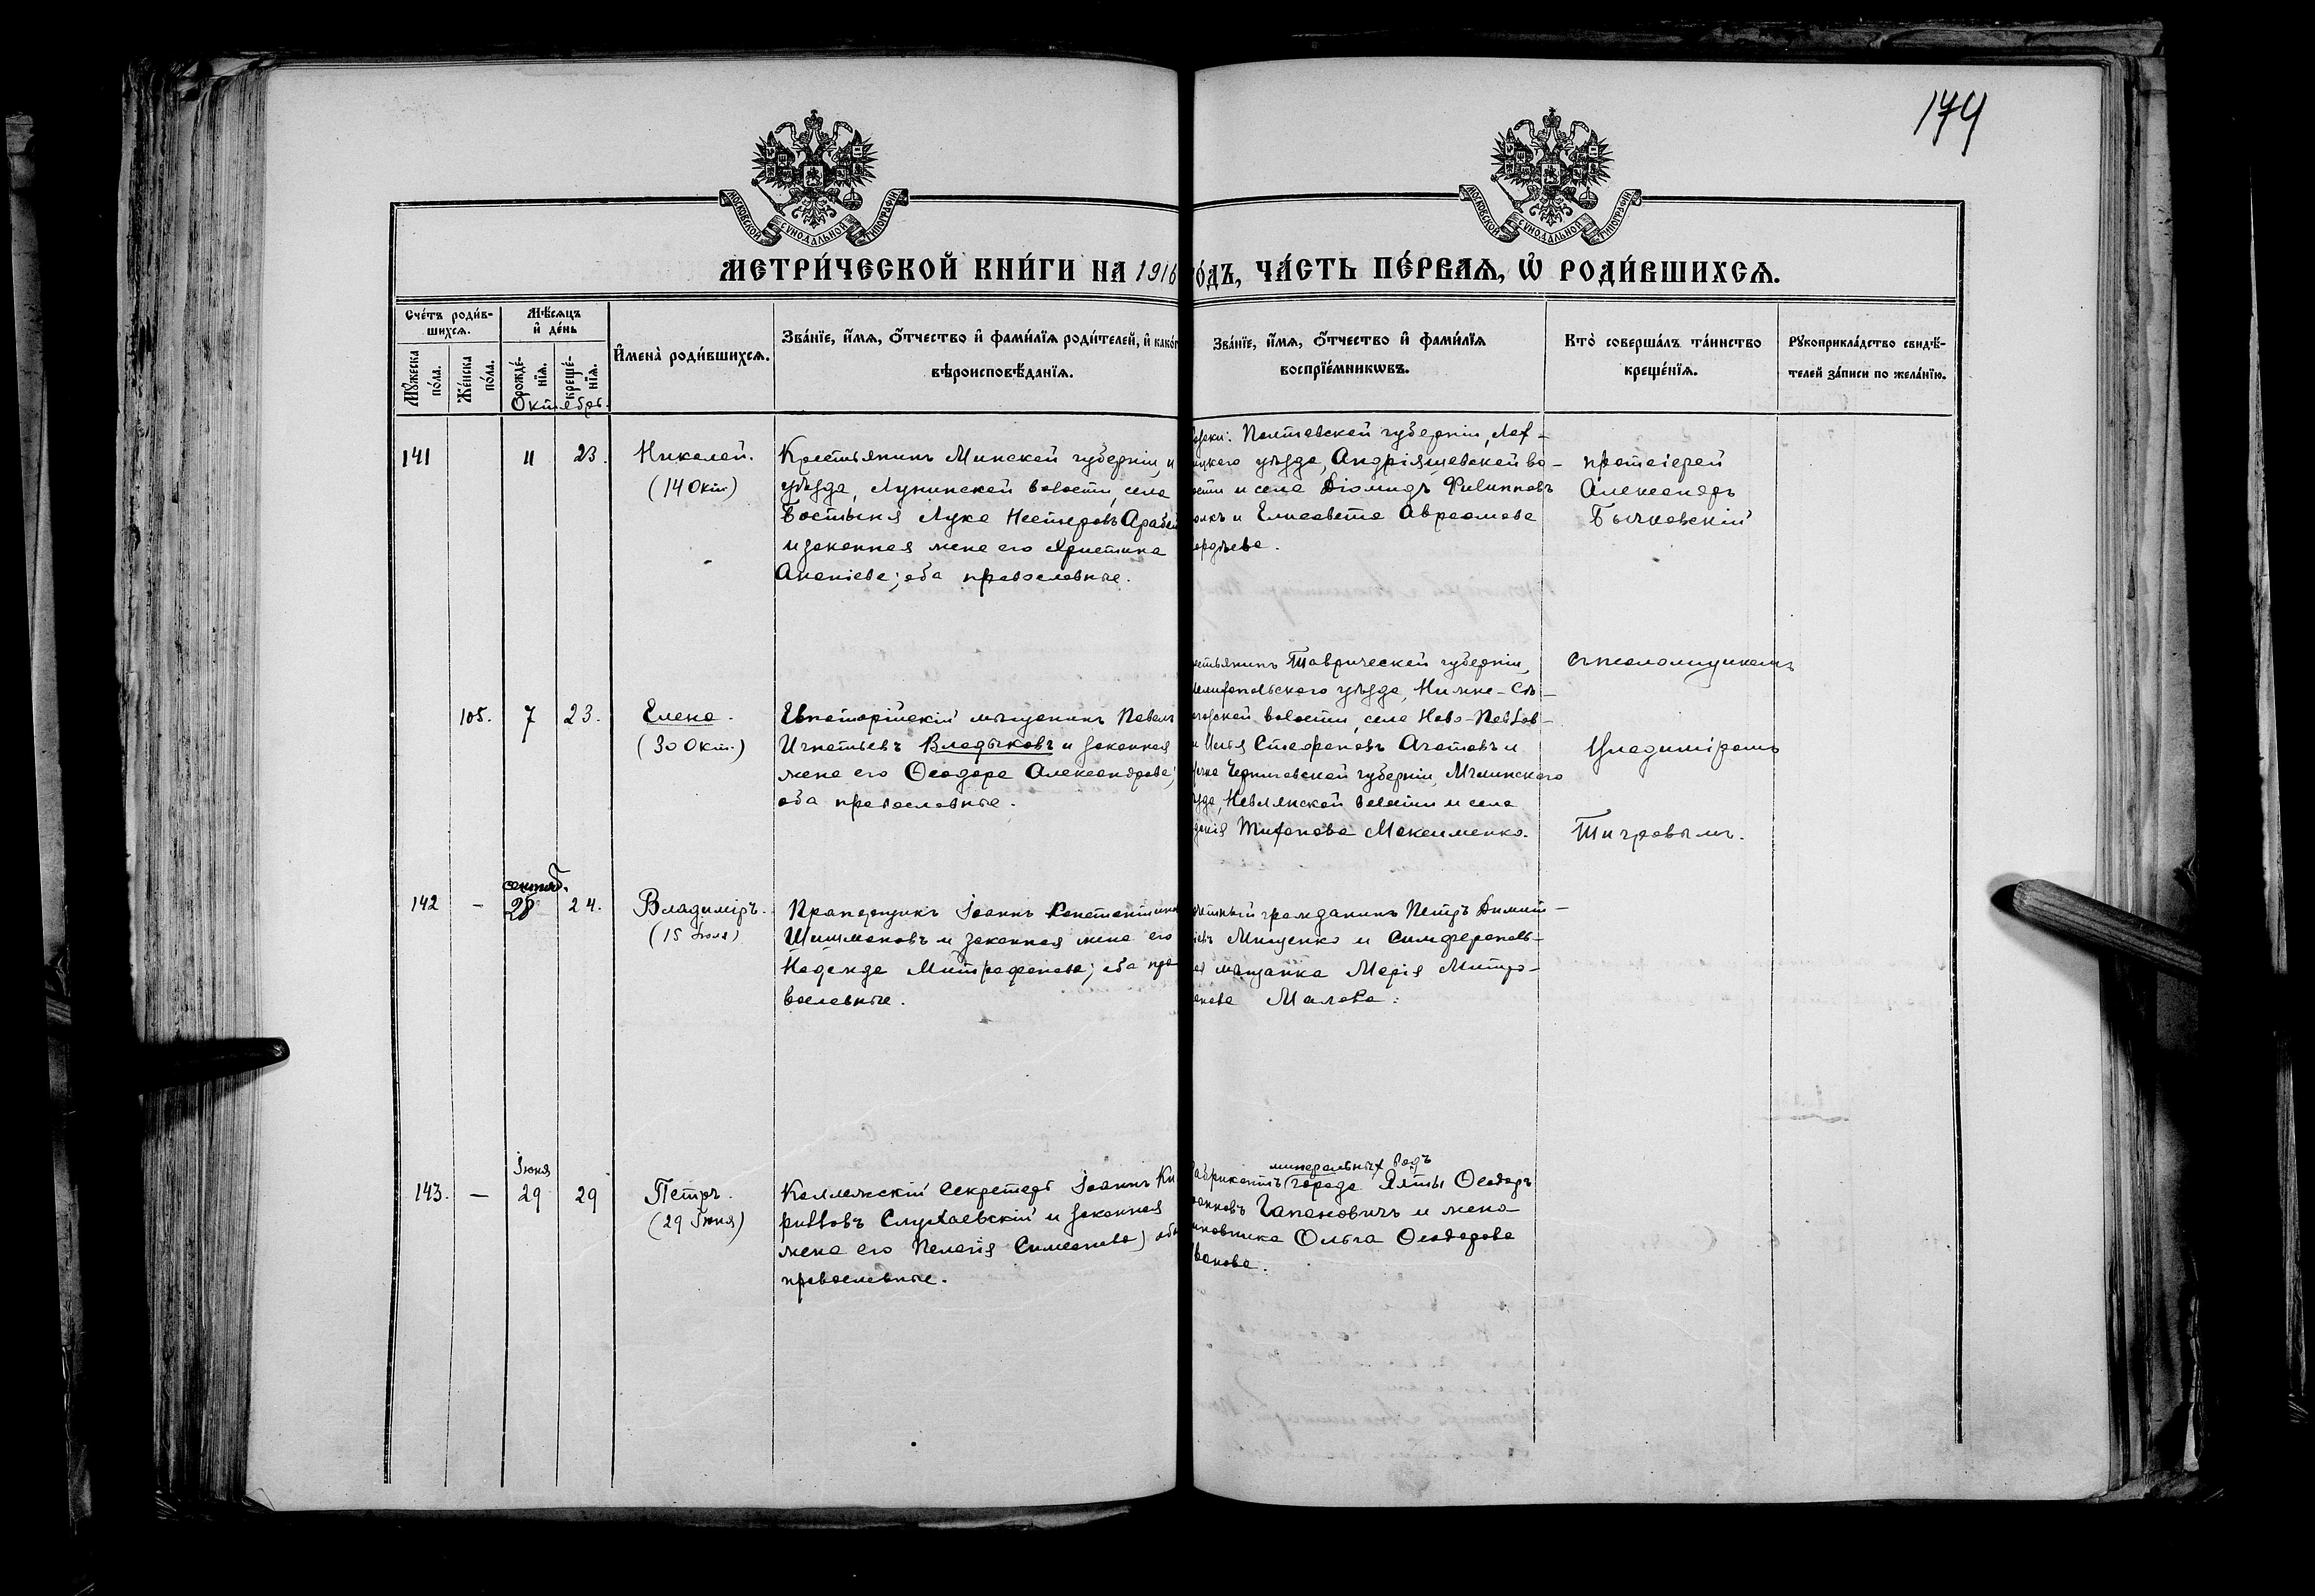 174
МОСКОВСКОЙ СѴНОДАЛЬНОЙ ТИПОГРАФІИ
МОСКОВСКОЙ СѴНОДАЛЬНОЙ ТИПОГРАФІИ
МЕТРИ́ЧЕСКОЙ КНИ́ГИ НА 1916
О́ДЪ, ЧА́СТЬ ПЕ́РВАѦ, Ѡ РОДИ́ВШИХСѦ.
Сче́тъ роди́в-
шихсѧ.
Мꙋ́жеска
по́ла.
Же́нска
по́ла.
Мѣ́сѧцъ
и де́нь
рожде́-
нїѧ.
креще́-
нїѧ.
Октябрь.
Имена̀ роди́вшихсѧ.
Зва́нїе, и́мѧ, о́тчество и фами́лїѧ роди́телей, и како́г
вѣроисповѣ́данїѧ.
Зва́нїе, и́мѧ, о́тчество и фами́лїѧ
воспрїе́мникѡвъ.
Кто̀ соверша́лъ та́инство
креще́нїѧ.
Рꙋкоприкла́дство свидѣ́-
телей за́писи по жела́нїю.
141
11
23.
Николай.
(14 Окт.)
Крестьянинъ Минской губерніи, и
уѣзда, Лунинской волости, села
Бостыня Лука Несторовъ
и законная жена его Христина
Ананіева; оба православные.
Полтавской губерніи, Лох-
ицкаго уѣзда, Андріяшевской во-
ости и села Діомидъ Филипповъ
и Елисавета Авраамова
протоіерей
Александръ
Бычковскій
105.
7
23.
Елена.
(30 Окт.)
Евпаторійскій мѣщанинъ Павелъ
Игнатьевъ Владыковъ и законная
жена его Ѳеодора Александрова;
оба православные.
естьянинъ Таврической губерніи,
Мелитопольскаго уѣзда, Нижне-Сѣ-
огозской волости, села Ново-Павлов-
и Илья Стефановъ Агатовъ и
Черниговской губерніи, Мглинскаго
волости и села
Тифонова Максименко.
съ псаломщикомъ
Владиміромъ
Тигровымъ.
142
-
сентяб.
28
24.
Владиміръ.
(15 Іюля)
Прапорщикъ Іоаннъ Константинов
Шишмановъ и законная жена его
Надежда Митрофанова; оба пра
вославные.
очетный гражданинъ Петръ Димит-
іевъ Мищенко и Симферополь-
ая мѣщанка Марія Митро-
анова
143.
-
Іюня
29
29
Петръ.
(29 Іюня)
Коллежскій Секретарь Іоаннъ Ки
рилловъ и законная
жена его Пелагія Симеонова; оба
православные.
минеральныхъ водъ
абрикантъ города Ялты Ѳеодоръ
оанновъ Гапановичъ и жена
иновника Ольга Ѳеодорова
ванова.